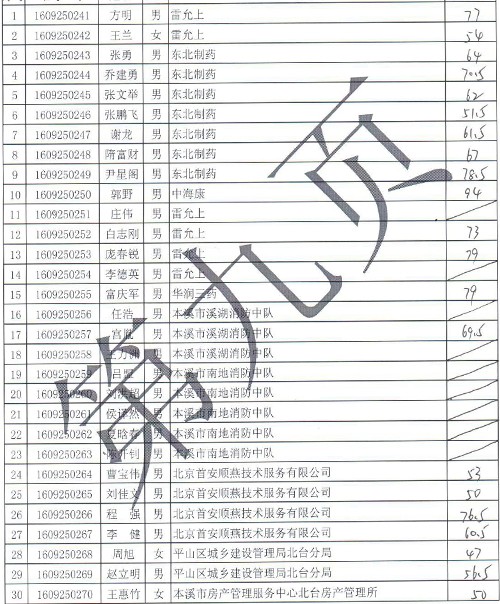 1 1609250241 方明 男 雷允上 77
2 1609250242 王兰 女 雷允上 54
3 1609250243 张勇 男 东北制药 64
4 1609250244 乔建勇 男 东北制药 70.5
5 1609250245 张文举 男 东北制药 62
6 1609250246 张鹏飞 男 东北制药 51.5
7 1609250247 谢龙 男 东北制药 61.5
8 1609250248 隋富财 男 东北制药 67
9 1609250249 尹星阁 男 东北制药 78.5
10 1609250250 郭野 男 中海康 94
11 1609250251 庄伟 男 雷允上
12 1609250252 白志刚 男 雷允上 73
13 1609250253 庞春锐 男 雷允上 79
14 1609250254 李德英 男 雷允上
15 1609250255 富庆军 男 华润三药 79
16 1609250256 任浩 男 本溪市溪湖消防中队
17 1609250257 宫 男 本溪市溪湖消防中队 69.5
18 1609250258 王万 男 本溪市溪湖消防中队
19 1609250259 吕 男 本溪市南地消防中队
20 1609250260 洪超 男 本溪市南地消防中队
21 1609250261 侯译然 男 本溪市南地消防中队
22 1609250262 夏晗春 男 本溪市南地消防中队
23 1609250263 开钊 男 本溪市南地消防中队
24 1609250264 曹宝伟 男 北京首安顺燕技术服务有限公司 53
25 1609250265 刘佳文 男 北京首安顺燕技术服务有限公司 50
26 1609250266 程 强 男 北京首安顺燕技术服务有限公司 76.5
27 1609250267 李 健 男 北京首安顺燕技术服务有限公司 60.5
28 1609250268 周旭 女 平山区城乡建设管理局北台分局 47
29 1609250269 赵立明 男 平山区城乡建设管理局北台分局 56.5
30 1609250270 王惠竹 女 本溪市房产管理服务中心北台房产管理所 50
第九页